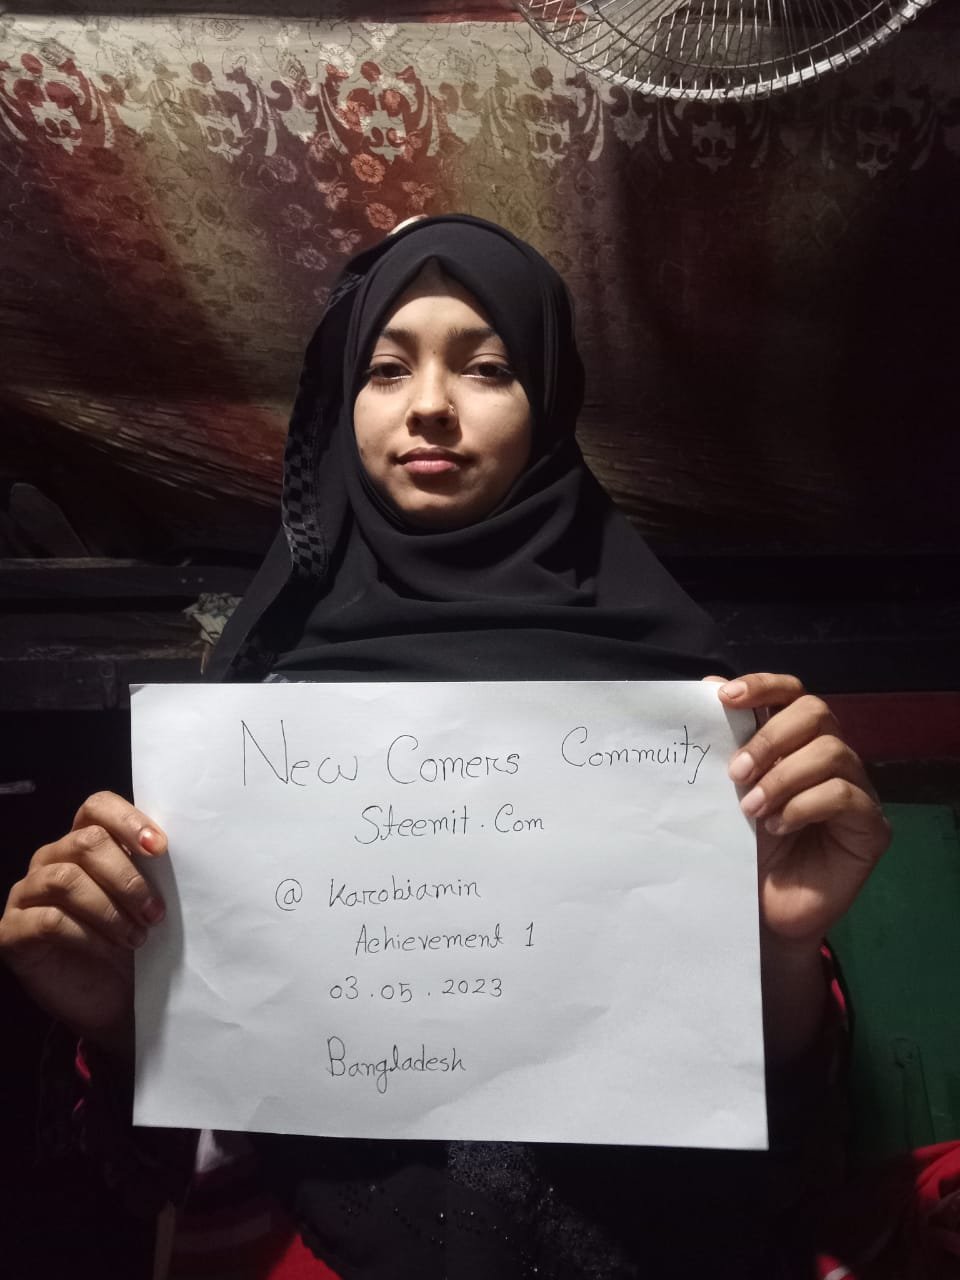 New Comers Commuity
Steemit.Com
@ Karobiamin
Achievement 1
03.05.2023
Bangladesh